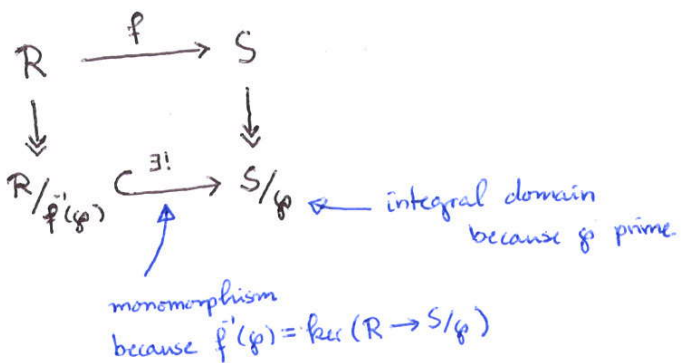 f
R → S
∃!
R/f⁻¹(℘) ↪ S/℘
integral domain
because ℘ prime.
monomorphism
because f⁻¹(℘) = ker (R → S/℘)